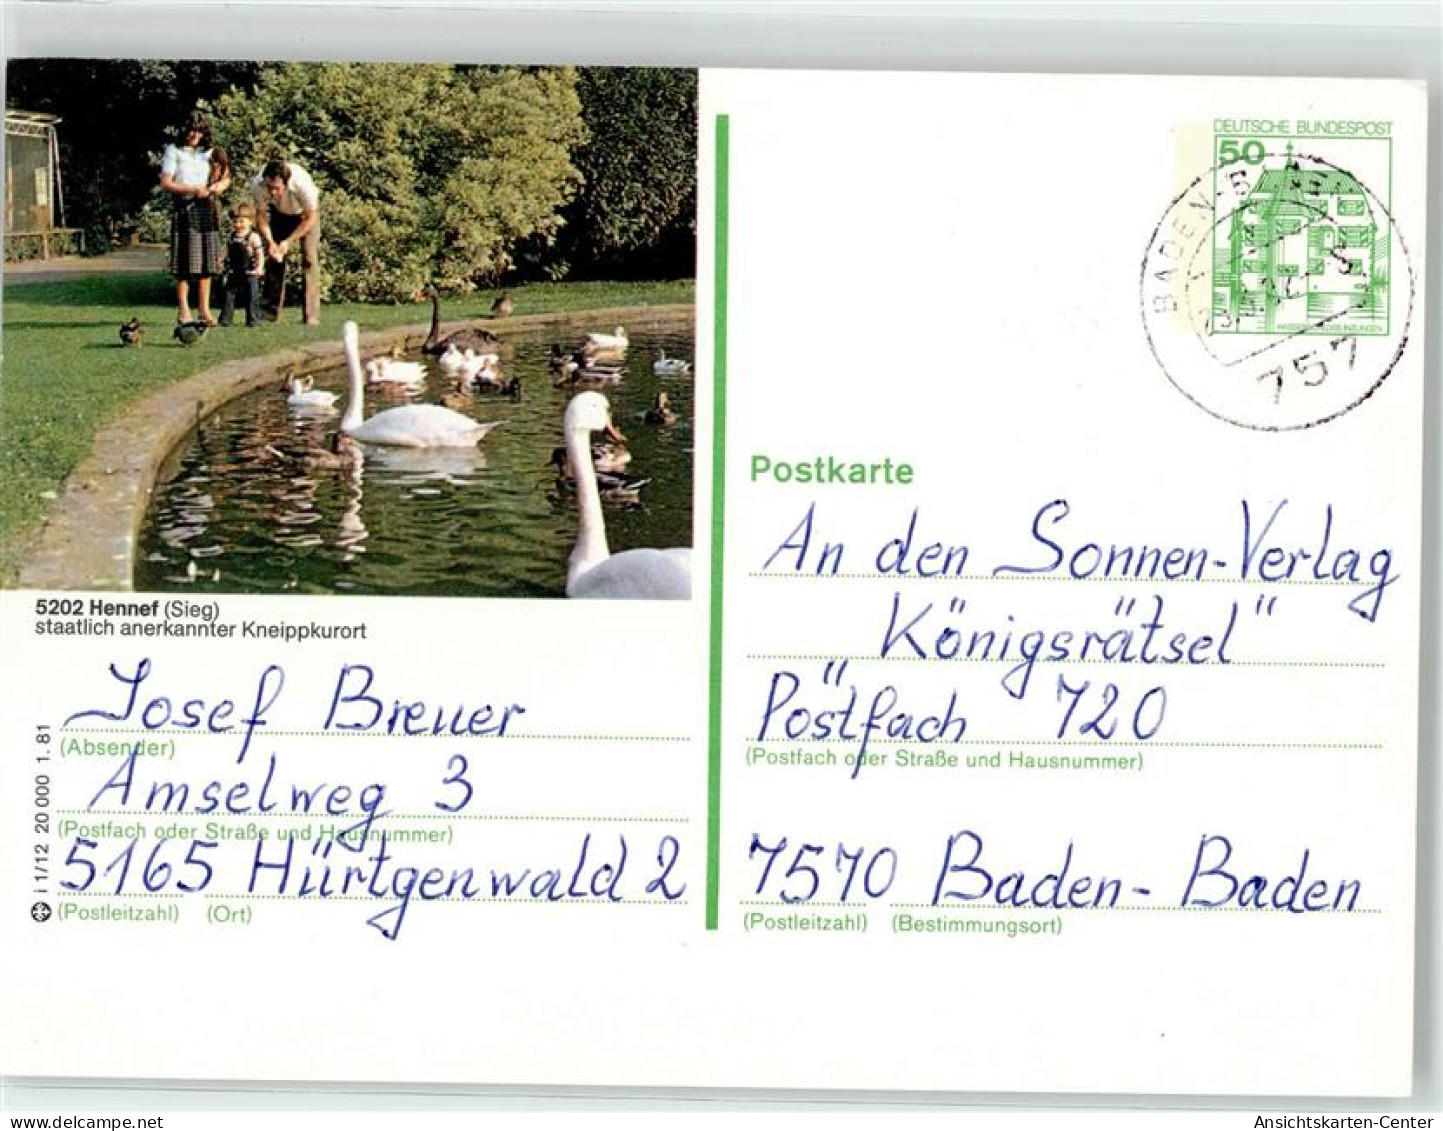 DEUTSCHE BUNDESPOST
50
BADEN-B
757
5202 Hennef (Sieg)
staatlich anerkannter Kneippkurort
Josef Breuer
(Absender)
Amselweg 3
(Postfach oder Straße und Hausnummer)
5165 Hürtgenwald 2
(Postleitzahl) (Ort)
i 1/12 20 000 1. 81
Postkarte
An den Sonnen-Verlag
"Königsrätsel"
Postfach 720
(Postfach oder Straße und Hausnummer)
7570 Baden-Baden
(Postleitzahl) (Bestimmungsort)
Ansichtskarten-Center